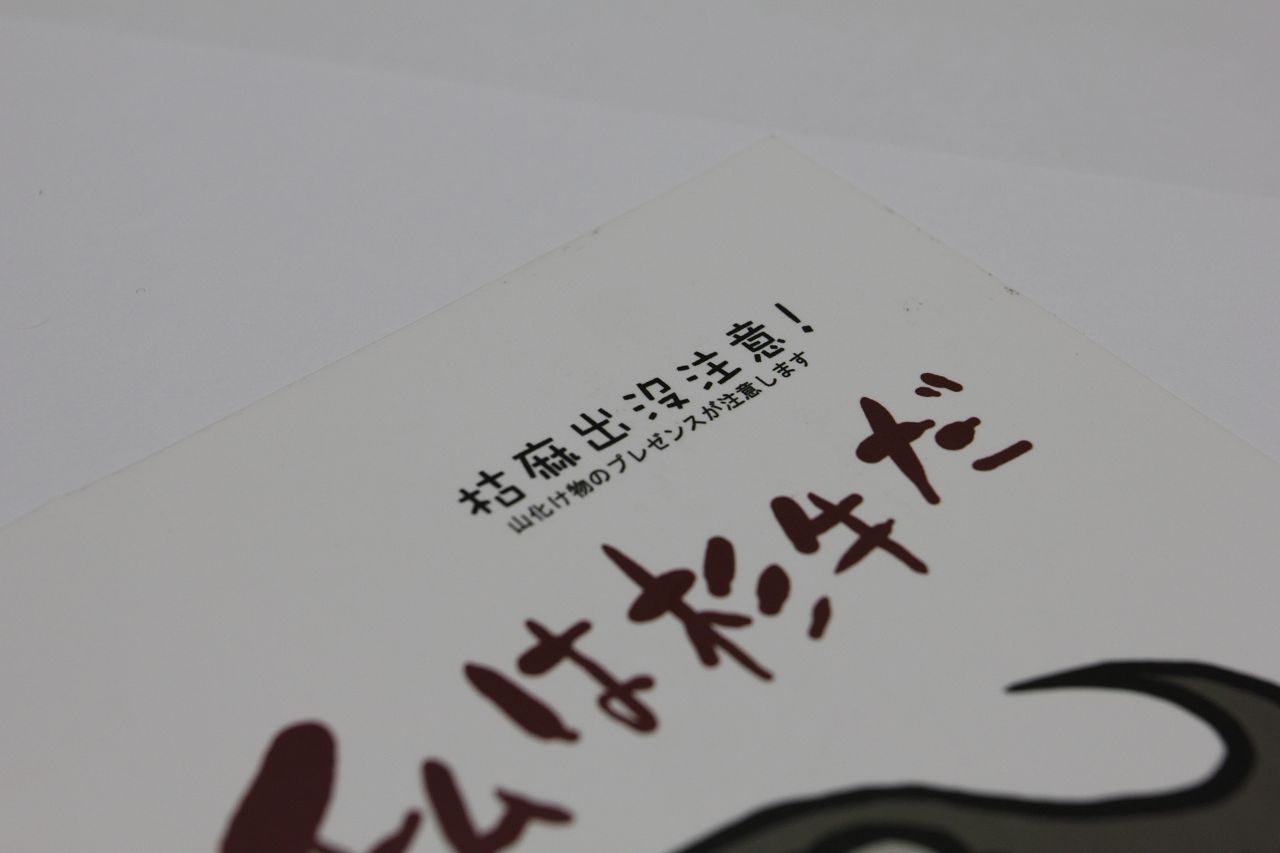 枯麻出没注意!
山化け物のプレゼンスが注意します
私は杉牛だ